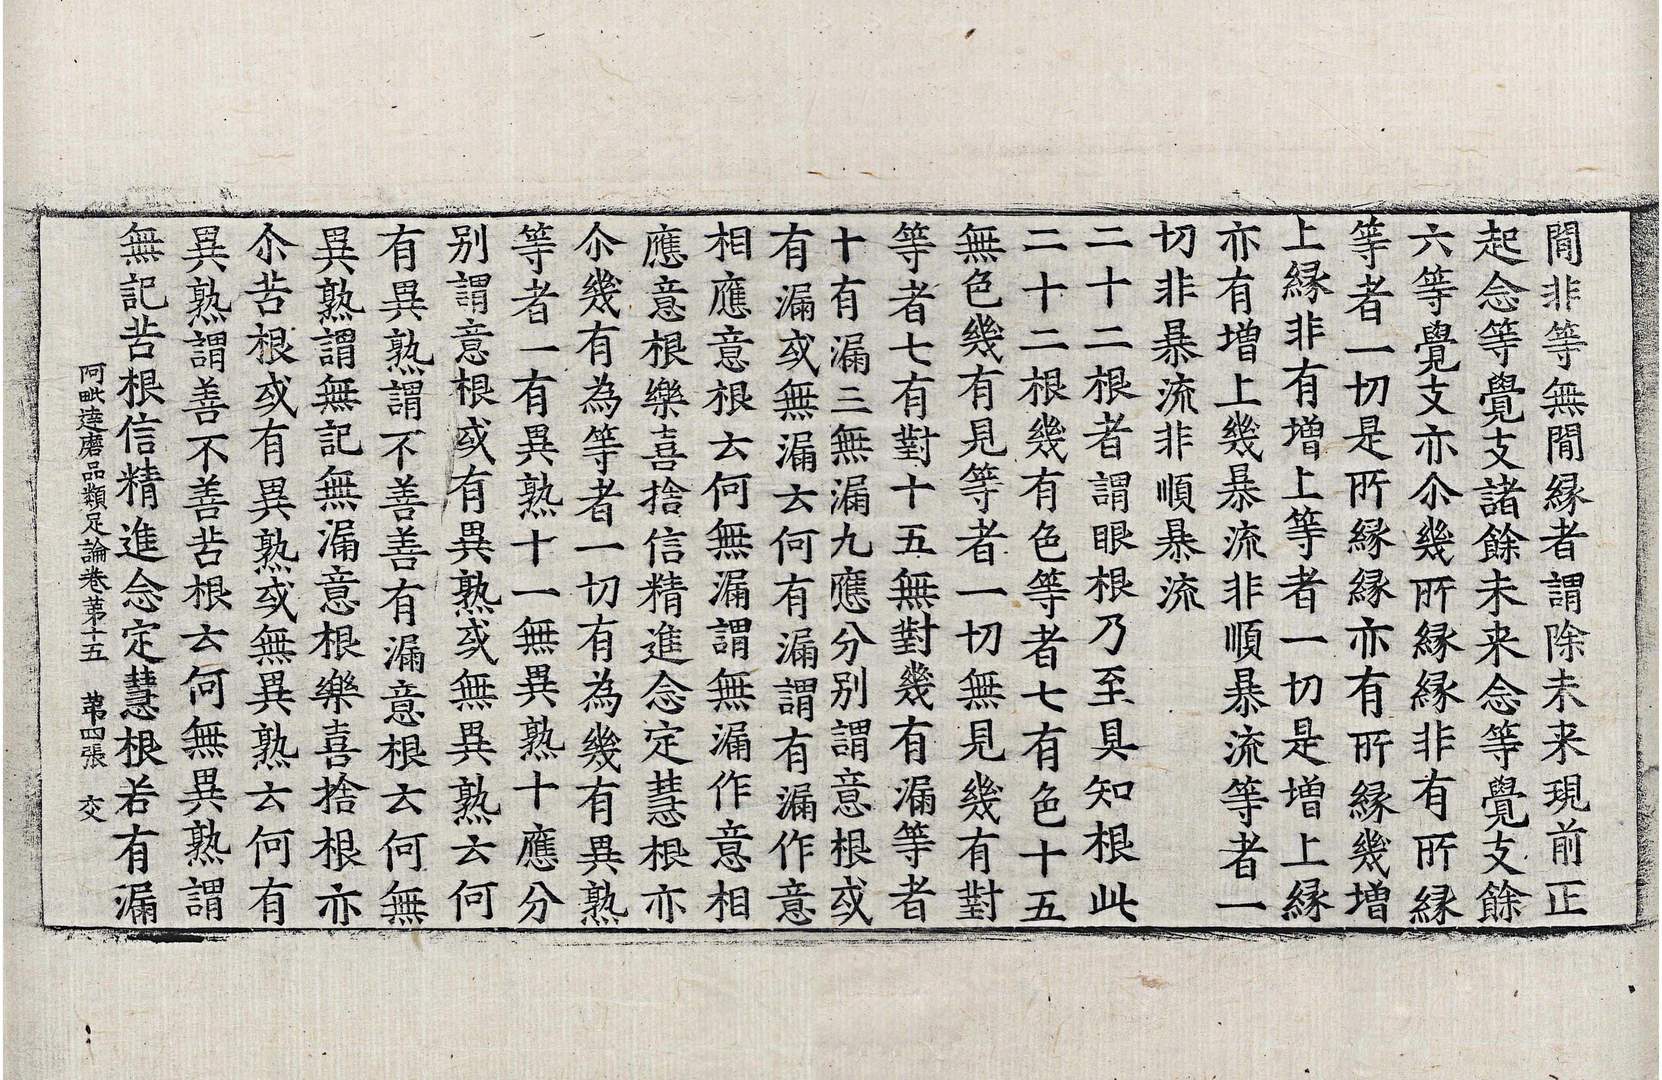 間非等無間縁者謂除未来現前正
起念等覺支諸餘未来念等覺支餘
六等覺支亦尒幾所縁縁非有所縁
等者一切是所縁縁亦有所縁幾增
上縁非有增上等者一切是增上縁
亦有增上幾暴流非順暴流等者一
切非暴流非順暴流
二十二根者謂眼根乃至具知根此
二十二根幾有色等者七有色十五
無色幾有見等者一切無見幾有對
等者七有對十五無對幾有漏等者
十有漏三無漏九應分别謂意根或
有漏或無漏云何有漏謂有漏作意
相應意根云何無漏謂無漏作意相
應意根樂喜捨信精進念定慧根亦
尒幾有為等者一切有為幾有異熟
等者一有異熟十一無異熟十應分
别謂意根或有異熟或無異熟云何
有異熟謂不善善有漏意根云何無
異熟謂無記無漏意根樂喜捨根亦
尒苦根或有異熟或無異熟云何有
異熟謂善不善苦根云何無異熟謂
無記苦根信精進念定慧根若有漏
阿毗達磨品類足論卷第十五 第四張 交